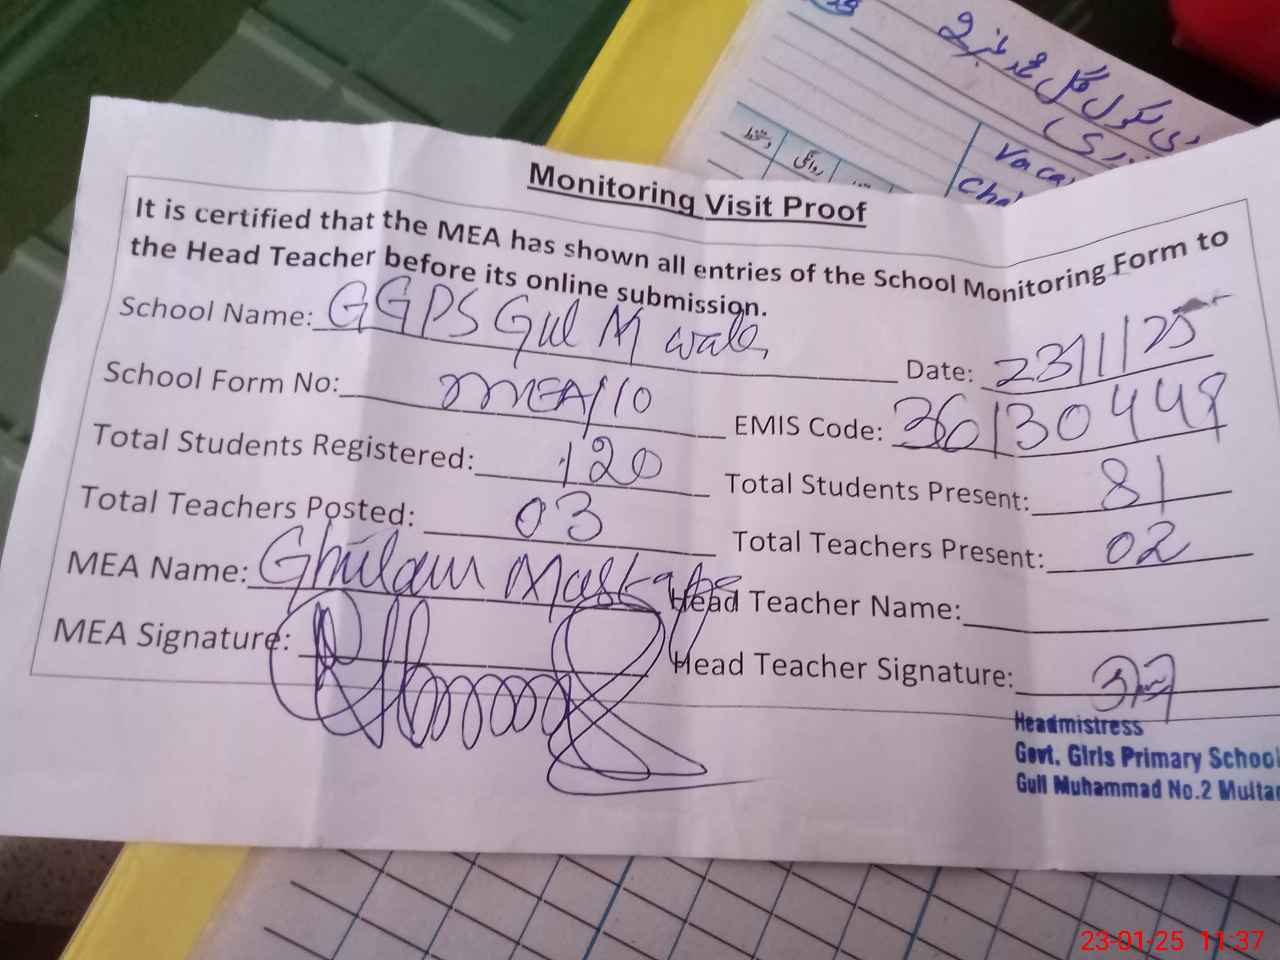 Vaca
Cha
روانگی
Monitoring Visit Proof
It is certified that the MEA has shown all entries of the School Monitoring Form to
the Head Teacher before its online submission.
School Name: GGPS Gul M wala
Date: 23/1/25
School Form No: MEA/10
EMIS Code: 36130449
Total Students Registered: 120
Total Students Present: 81
Total Teachers Posted: 03
Total Teachers Present: 02
MEA Name: Ghulam Mustafa
Head Teacher Name:
MEA Signature:
Head Teacher Signature:
Headmistress
Govt. Girls Primary School
Gull Muhammad No.2 Multan
23-01-25 11:37